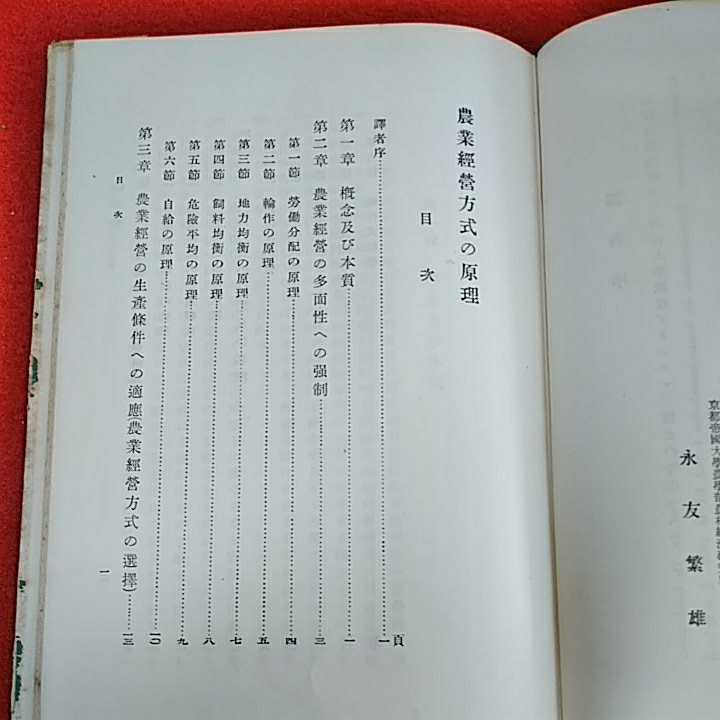 京都帝國大學農學部
永友繁雄
農業經營方式の原理
目次
譯者序……一頁
第一章 槪念及び本質……一
第二章 農業經營の多面性への强制……三
第一節 勞働分配の原理……四
第二節 輪作の原理……五
第三節 地力均衡の原理……七
第四節 飼料均衡の原理……八
第五節 危險平均の原理……九
第六節 自給の原理……一〇
第三章 農業經營の生產條件への適應(農業經營方式の選擇)……一三
目次
一